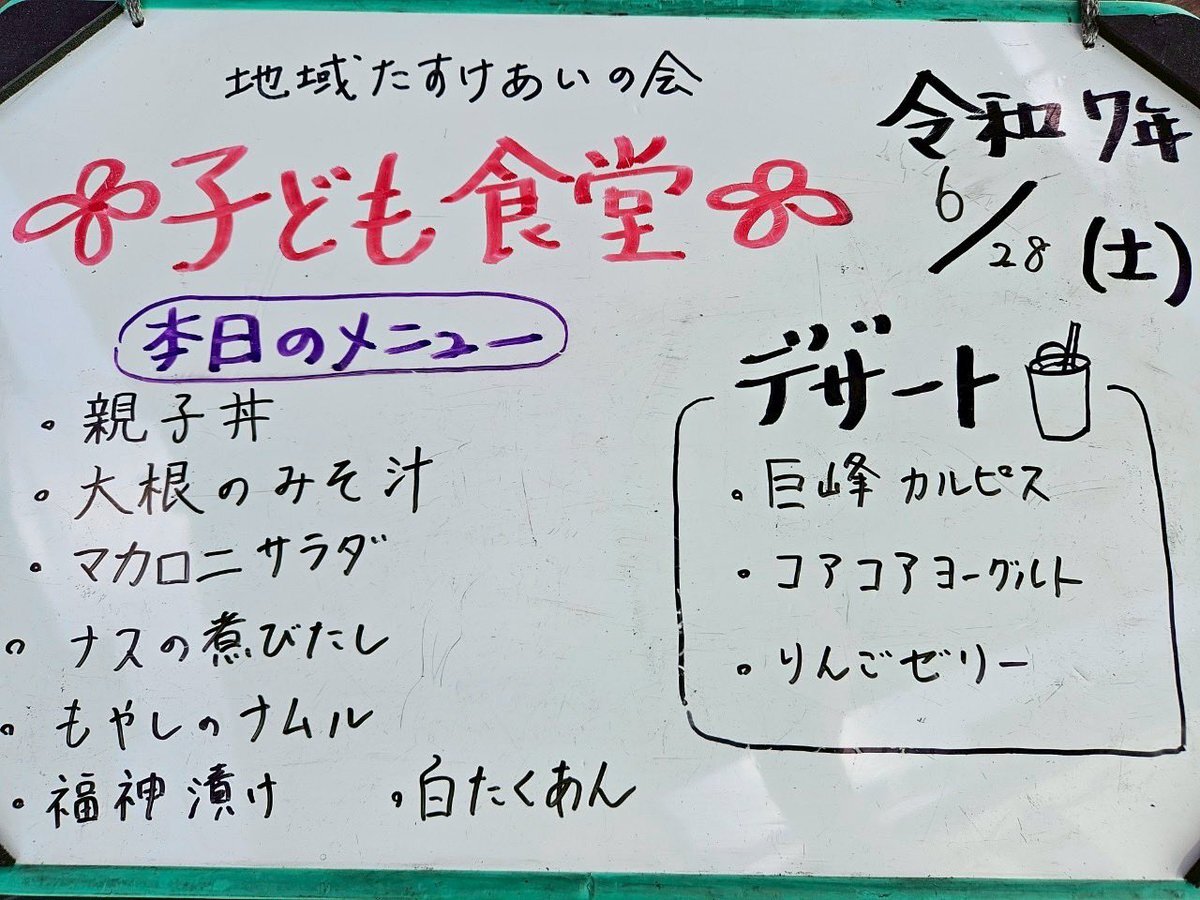 地域たすけあいの会
子ども食堂
令和7年
6/28(土)
本日のメニュー
・親子丼
・大根のみそ汁
・マカロニサラダ
・ナスの煮びたし
・もやしのナムル
・福神漬け ・白たくあん
デザート
・巨峰カルピス
・コアコアヨーグルト
・りんごゼリー